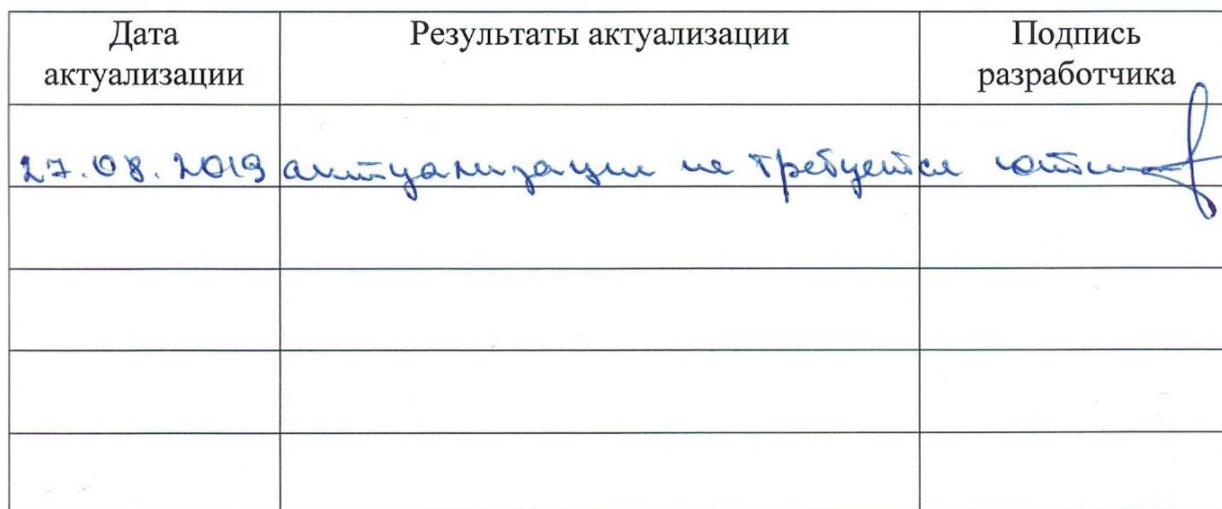 Дата актуализации Результаты актуализации Подпись разработчика
27.08.2019 актуализации не требуется